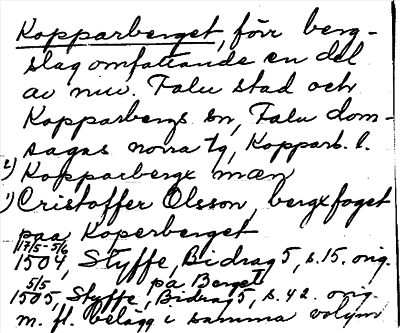 Kopparberget, förr berg-
slag omfattande en del
av nuv. Falu stad och
Kopparbergs sn, Falu dom-
sagas norra tg, Kopparb. l.
2) Kopparbergx mæn
1) Cristoffer Olsson, bergxfoget
paa Koperberget
17/5-5/6
1504, Styffe, Bidrag 5, s. 15. orig.
5/5 på Berget
1505, Styffe, Bidrag 5, s. 42. orig.
m. fl. belägg i samma volym